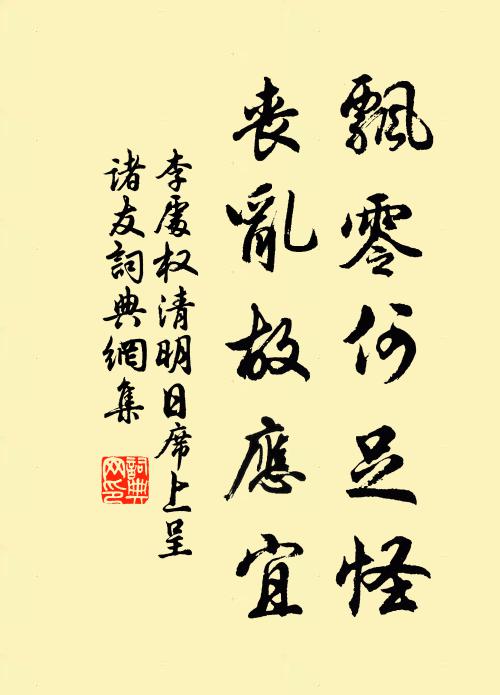 飄零何足怪
喪亂故應宜
李處权清明日席上呈
诸友詞典網集
詞典网印